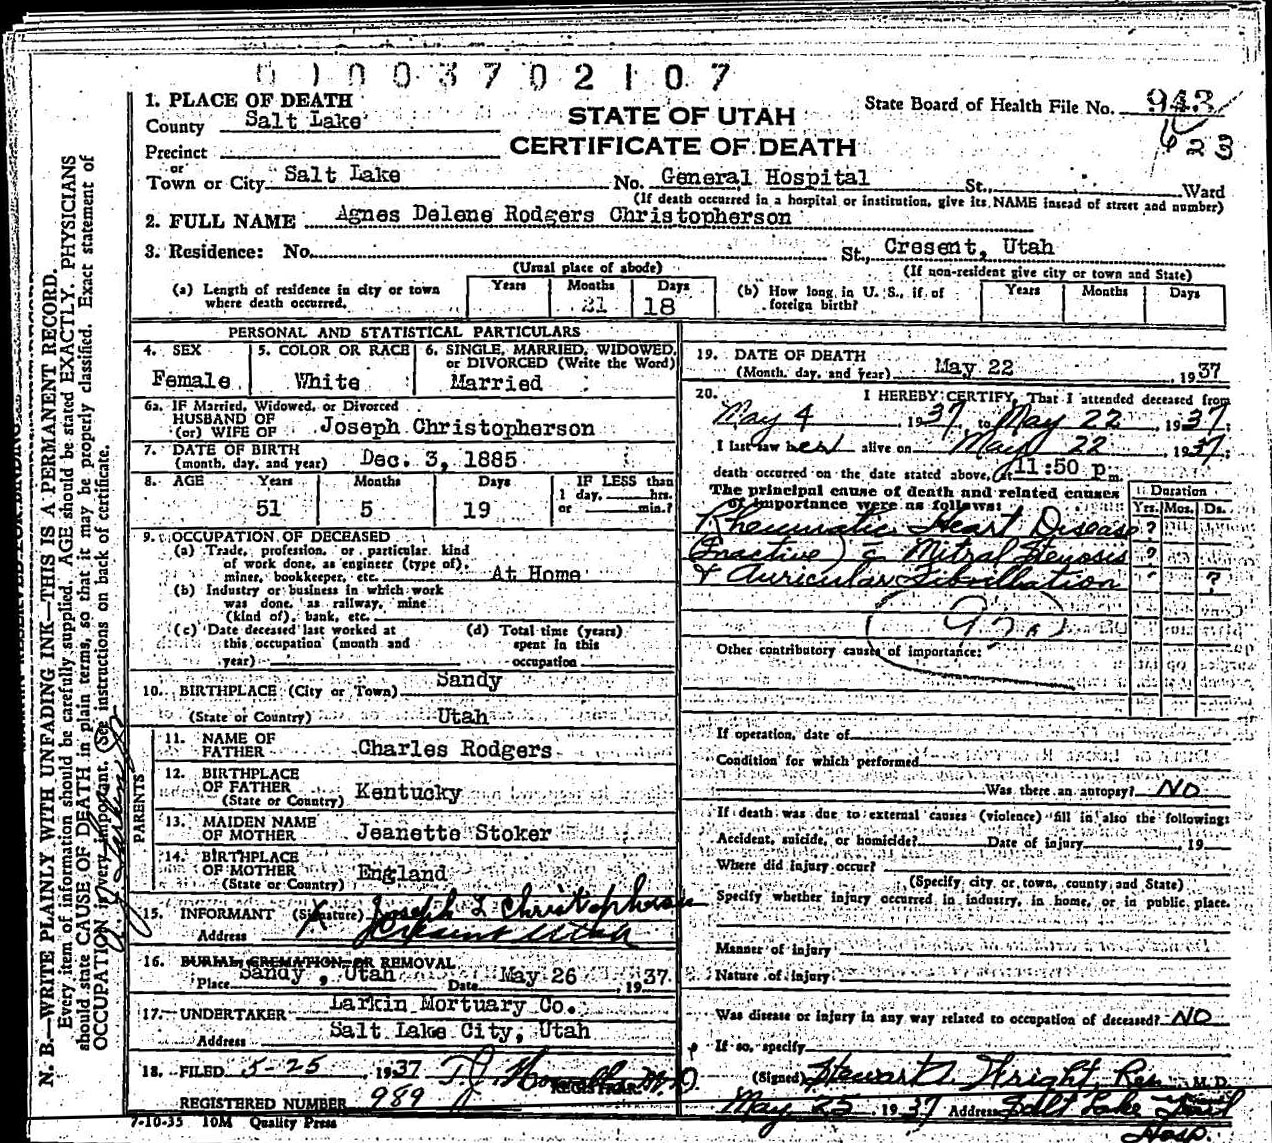 0 1 0 0 3 7 0 2 1 0 7
1. PLACE OF DEATH
County Salt Lake
STATE OF UTAH
CERTIFICATE OF DEATH
State Board of Health File No. 943
Precinct
or
Town or City Salt Lake No. General Hospital St., Ward
(If death occurred in a hospital or institution, give its NAME instead of street and number)
2. FULL NAME Agnes Delene Rodgers Christopherson
3. Residence: No. St., Cresent, Utah
(Usual place of abode) (If non-resident give city or town and State)
(a) Length of residence in city or town where death occurred. Years Months 21 Days 18
(b) How long in U. S., if of foreign birth? Years Months Days
PERSONAL AND STATISTICAL PARTICULARS
4. SEX Female
5. COLOR OR RACE White
6. SINGLE, MARRIED, WIDOWED, or DIVORCED (Write the Word) Married
6a. IF Married, Widowed, or Divorced
HUSBAND OF
(or) WIFE OF Joseph Christopherson
7. DATE OF BIRTH
(month, day, and year) Dec. 3, 1885
8. AGE Years 51 Months 5 Days 19
IF LESS than
1 day, hrs.
or min.?
9. OCCUPATION OF DECEASED
(a) Trade, profession, or particular kind
of work done, as engineer (type of),
miner, bookkeeper, etc. At Home
(b) Industry or business in which work
was done, as railway, mine
(kind of), bank, etc.
(c) Date deceased last worked at
this occupation (month and
year)
(d) Total time (years)
spent in this
occupation
10. BIRTHPLACE (City or Town) Sandy
(State or Country) Utah
PARENTS
11. NAME OF
FATHER Charles Rodgers
12. BIRTHPLACE
OF FATHER
(State or Country) Kentucky
13. MAIDEN NAME
OF MOTHER Jeanette Stoker
14. BIRTHPLACE
OF MOTHER
(State or Country) England
15. INFORMANT (Signature) X Joseph L Christopherson
Address Cresent Utah
16. BURIAL, CREMATION OR REMOVAL
Place Sandy, Utah Date May 26, 1937
17. UNDERTAKER Larkin Mortuary Co.
Address Salt Lake City, Utah
18. FILED 5-25 1937 T. J. M.D.
REGISTRAR.
REGISTERED NUMBER 989
7-10-35 10M Quality Press
19. DATE OF DEATH
(Month, day, and year) May 22, 1937
20. I HEREBY CERTIFY, That I attended deceased from
May 4 1937, to May 22, 1937;
I last saw her alive on May 22, 1937;
death occurred on the date stated above, at 11:50 p m.
The principal cause of death and related causes
of importance were as follows:
Duration
Yrs. Mos. Ds.
Rheumatic Heart Disease ?
(Inactive) c Mitral Stenosis ?
& Auricular Fibrillation ?
Other contributory causes of importance:
If operation, date of
Condition for which performed
Was there an autopsy? NO
If death was due to external causes (violence) fill in also the following:
Accident, suicide, or homicide? Date of injury, 19
Where did injury occur?
(Specify city or town, county and State)
Specify whether injury occurred in industry, in home, or in public place.
Manner of injury
Nature of injury
Was disease or injury in any way related to occupation of deceased? NO
If so, specify
(Signed) Stewart A. Wright, Res M. D.
May 25, 1937 Address Salt Lake Genl
Hosp.
N. B.—WRITE PLAINLY WITH UNFADING INK—THIS IS A PERMANENT RECORD.
Every item of information should be carefully supplied. AGE should be stated EXACTLY. PHYSICIANS
should state CAUSE OF DEATH in plain terms, so that it may be properly classified. Exact statement of
OCCUPATION is very important. See instructions on back of certificate.